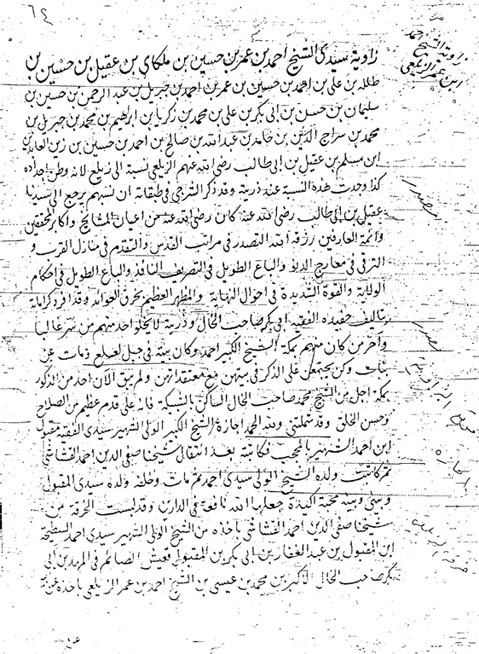 ٦٤
زاوية الشيخ احمد
ابن عمر الزيلعي
زاوية سيدى الشيخ احمد بن عمر بن حسين بن ملكاى بن عقيل بن حسين بن
طلحه بن على بن احمد بن حسين بن عمر بن احمد بن جبريل بن عبد الرحمن بن حسين بن
سليمان بن حسن بن ابى بكر بن على بن محمد بن زكريا بن ابراهيم بن محمد بن جبريل بن
محمد بن سراج الدين بن حامد بن عبد الله بن صالح بن احمد بن حسين بن زين العابدين
ابن مسلم بن عقيل بن ابى طالب رضى الله عنهم الزيلعى نسبة الى زيلع لانه وطن اجداده
كذا وجدت هذه النسبة عند ذريته وقد ذكر الشرجى فى طبقاته ان نسبهم يرجع الى سيدنا
عقيل بن ابى طالب رضى الله عنه كان رضى الله عنه من اعيان المشائخ واكابر المحققين
وائمة العارفين رزقه الله التصدر فى مراتب القدس والتقدم فى منازل القرب و
الترقى فى معارج الدنو والباع الطويل فى التصريف النافذ والباع الطويل فى احكام
الولاية والقوة الشديدة فى احوال النهاية والمظهر العظيم بخرق العوائد وقد افرد كراماته
بتاليف حفيده الفقيه ابى بكر صاحب الخال وذرية لا يخلو احد منهم من سر غالبا
واخر من كان منهم بمكة الشيخ الكبير احمد وكان بيته فى جبل لعلع ومات عن
بنات وكن يجتمعن على الذكر فى بيتهن مع معتقداتهن ولم يبق الان احد من الذكور
بمكة اجل من الشيخ محمد صاحب الخال الساكن بالشبيكة فانه على قدم عظيم من الصلاح
وحسن الخلق وقد شملتنى ولله الحمد اجازة الشيخ الكبير الولى الشهير سيدى الفقيه مقبول
ابن احمد الشهير بالمحجب فكاتبته بعد انتقال شيخنا صفى الدين احمد القشاشى
ثم كاتبت ولده الشيخ الولى سيدى احمد ثم مات وخلفه ولده سيدى المقبول
وبينى وبينه محبة اكيدة جعلها الله نافعة فى الدارين وقد لبست الخرقة من
شيخنا صفى الدين احمد القشاشى باخذه من الشيخ الولى الشهير سيدى احمد السطيحة
ابن المقبول بن عبد الغفار بن ابى بكر بن المقبول بن الصائم فى المهد بن ابى
بكر صاحب الخال بن محمد بن عيسى بن الشيخ احمد بن عمر الزيلعى باخذه عن